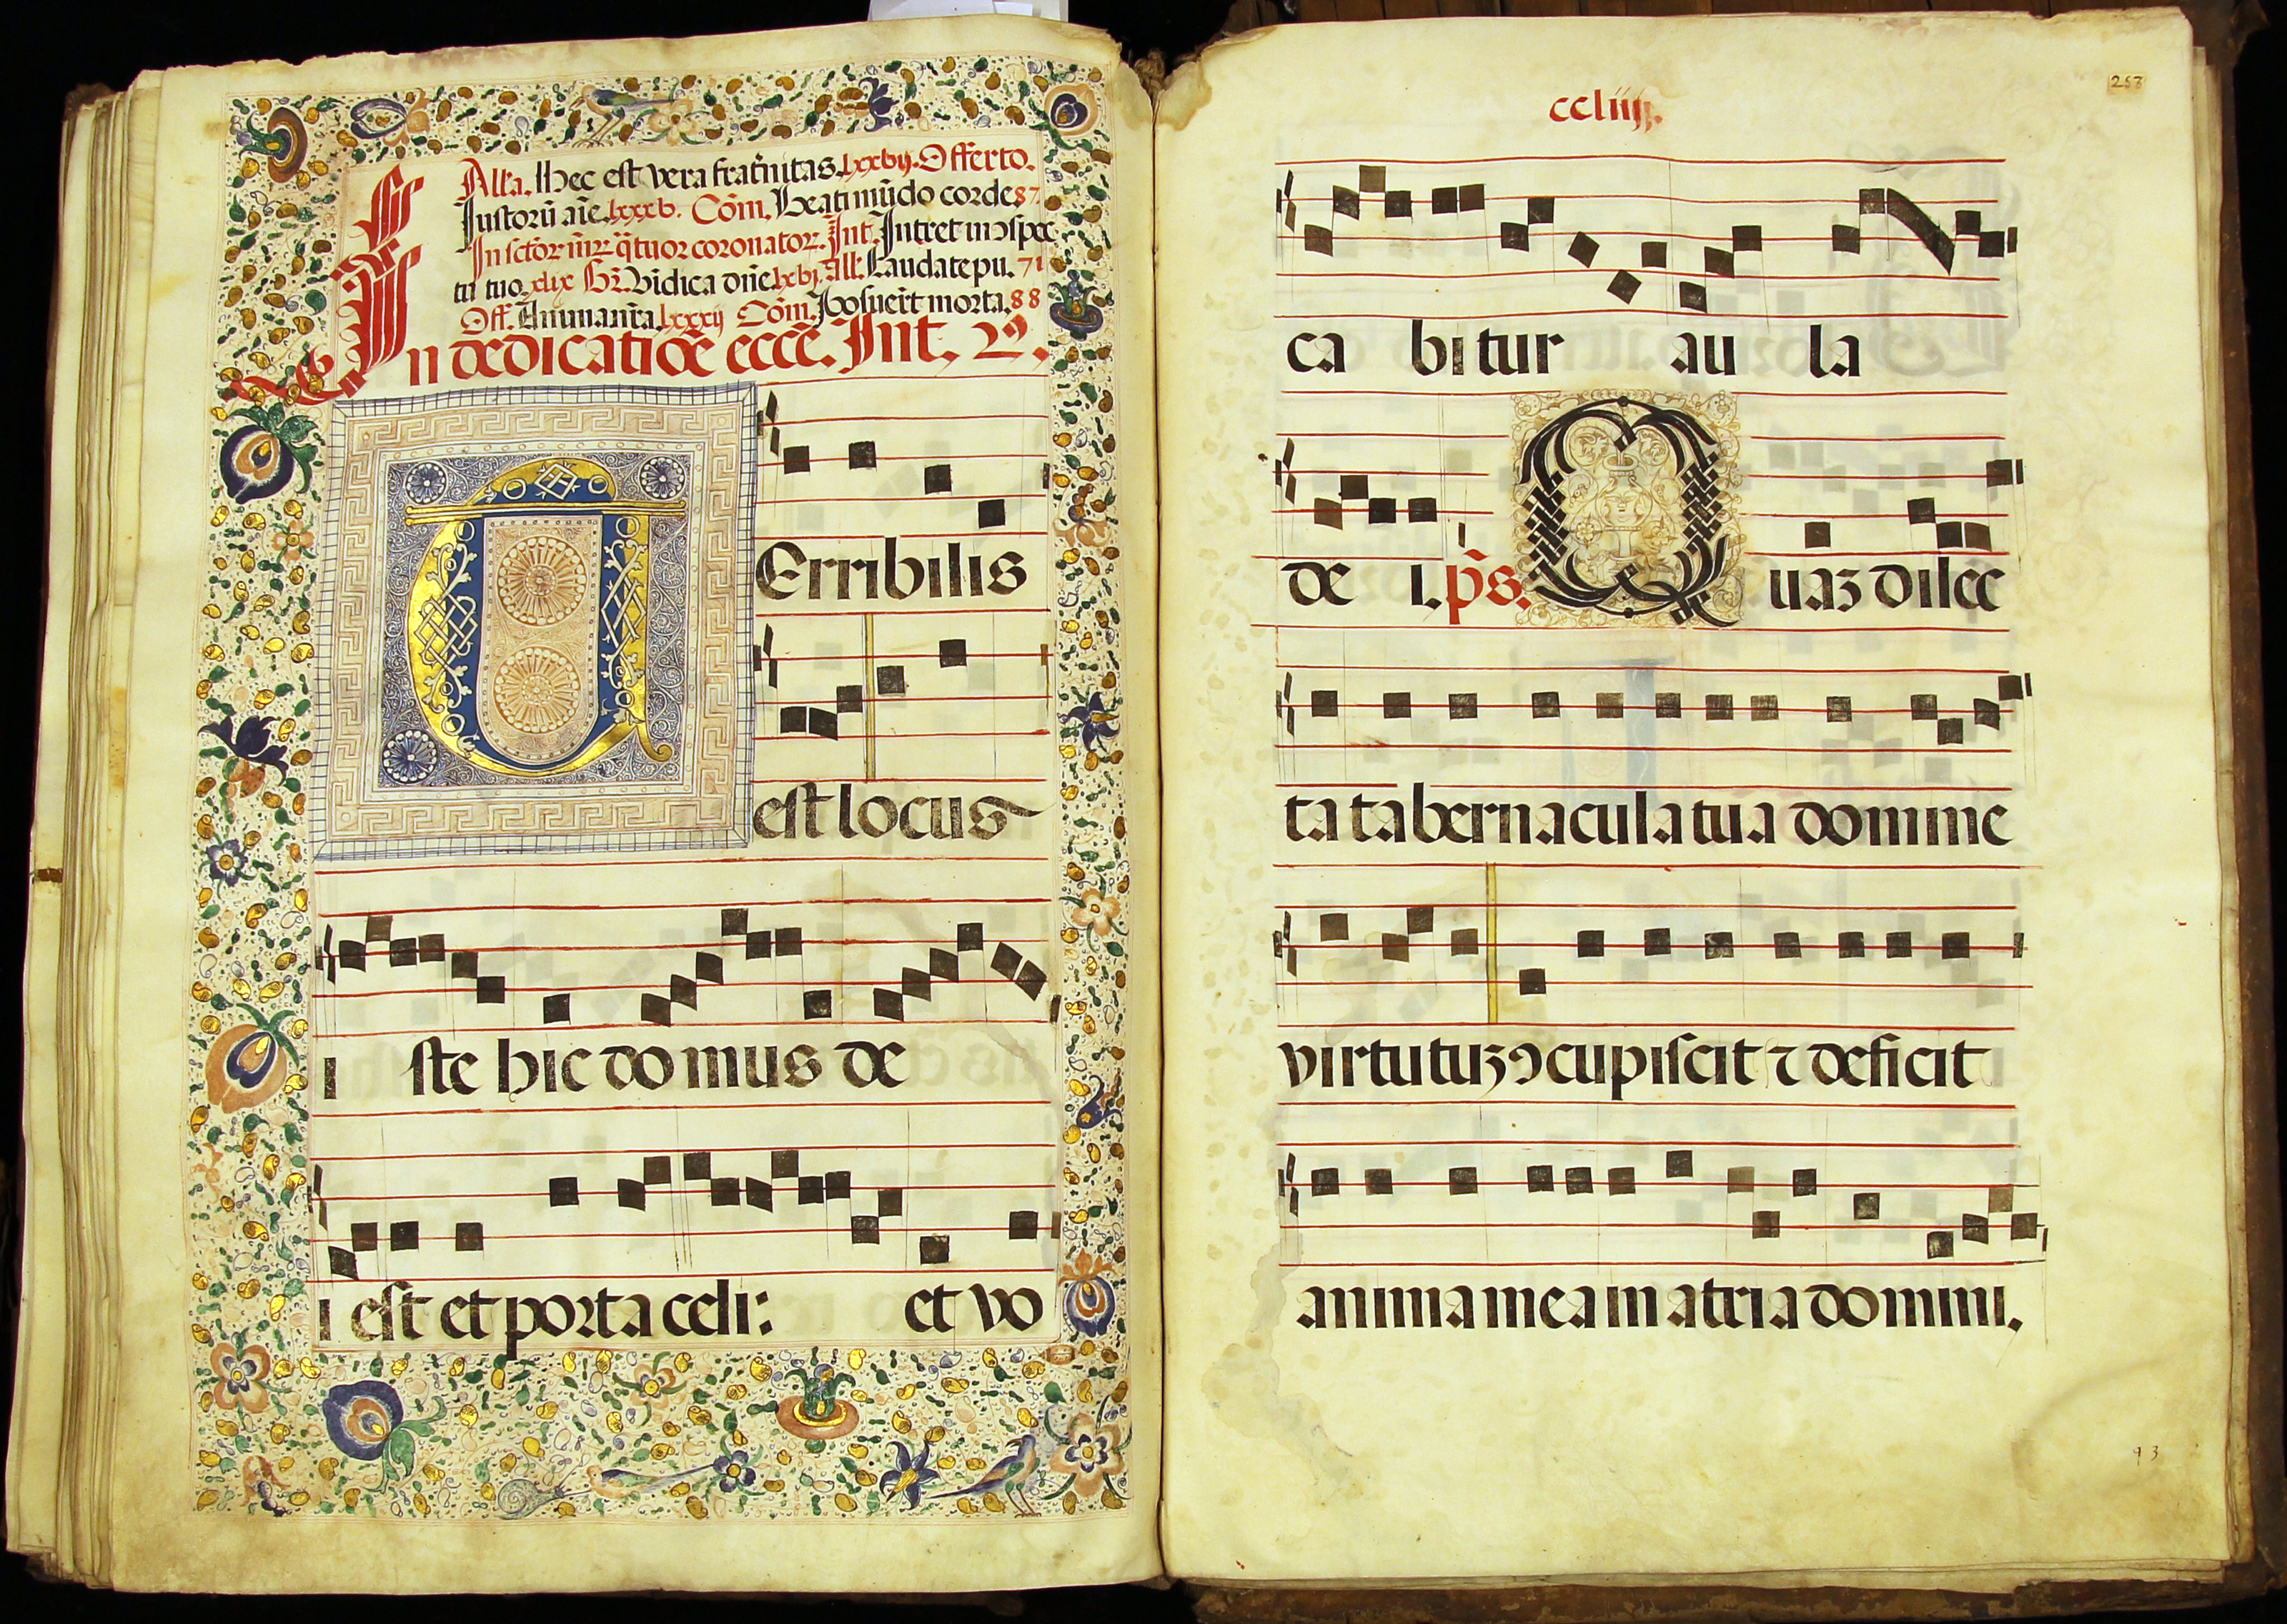 Alľa. Hec est vera frat̃nitas. lxxvij. Offerto.
Iustorũ aĩe. lxxxv. Cõm. Beati mũdo corde 87
In sctõr m̃r q̃tuor coronator. Int. Intret in ↄspec
tu tuo. xlix Br̃. Vĩdica dñe lxvj. All̃. Laudate pu. 71
Off. Anima nr̃a lxxxij Cõm. Posuer̃t morta. 88
In dedicatiõe ecce. Int.
TErribilis
est locus
i ste hic domus de
i est et porta celi: et vo
ccliiij.
ca bitur au la
de i. p̃s. Quaꝫ dilec
ta tabernacula tua domine
virtutuꝫ ↄcupiscit ⁊ deficit
anima mea in atria domini.
93